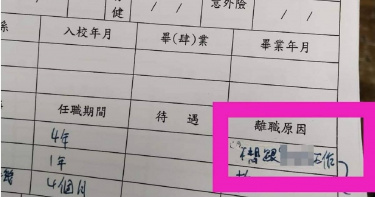 健
意外險
/ /
/ /
係
入校年月
畢(肄)業
畢業年月
任職期間
待遇
離職原因
4年
不想跟
工作
1年
4個月